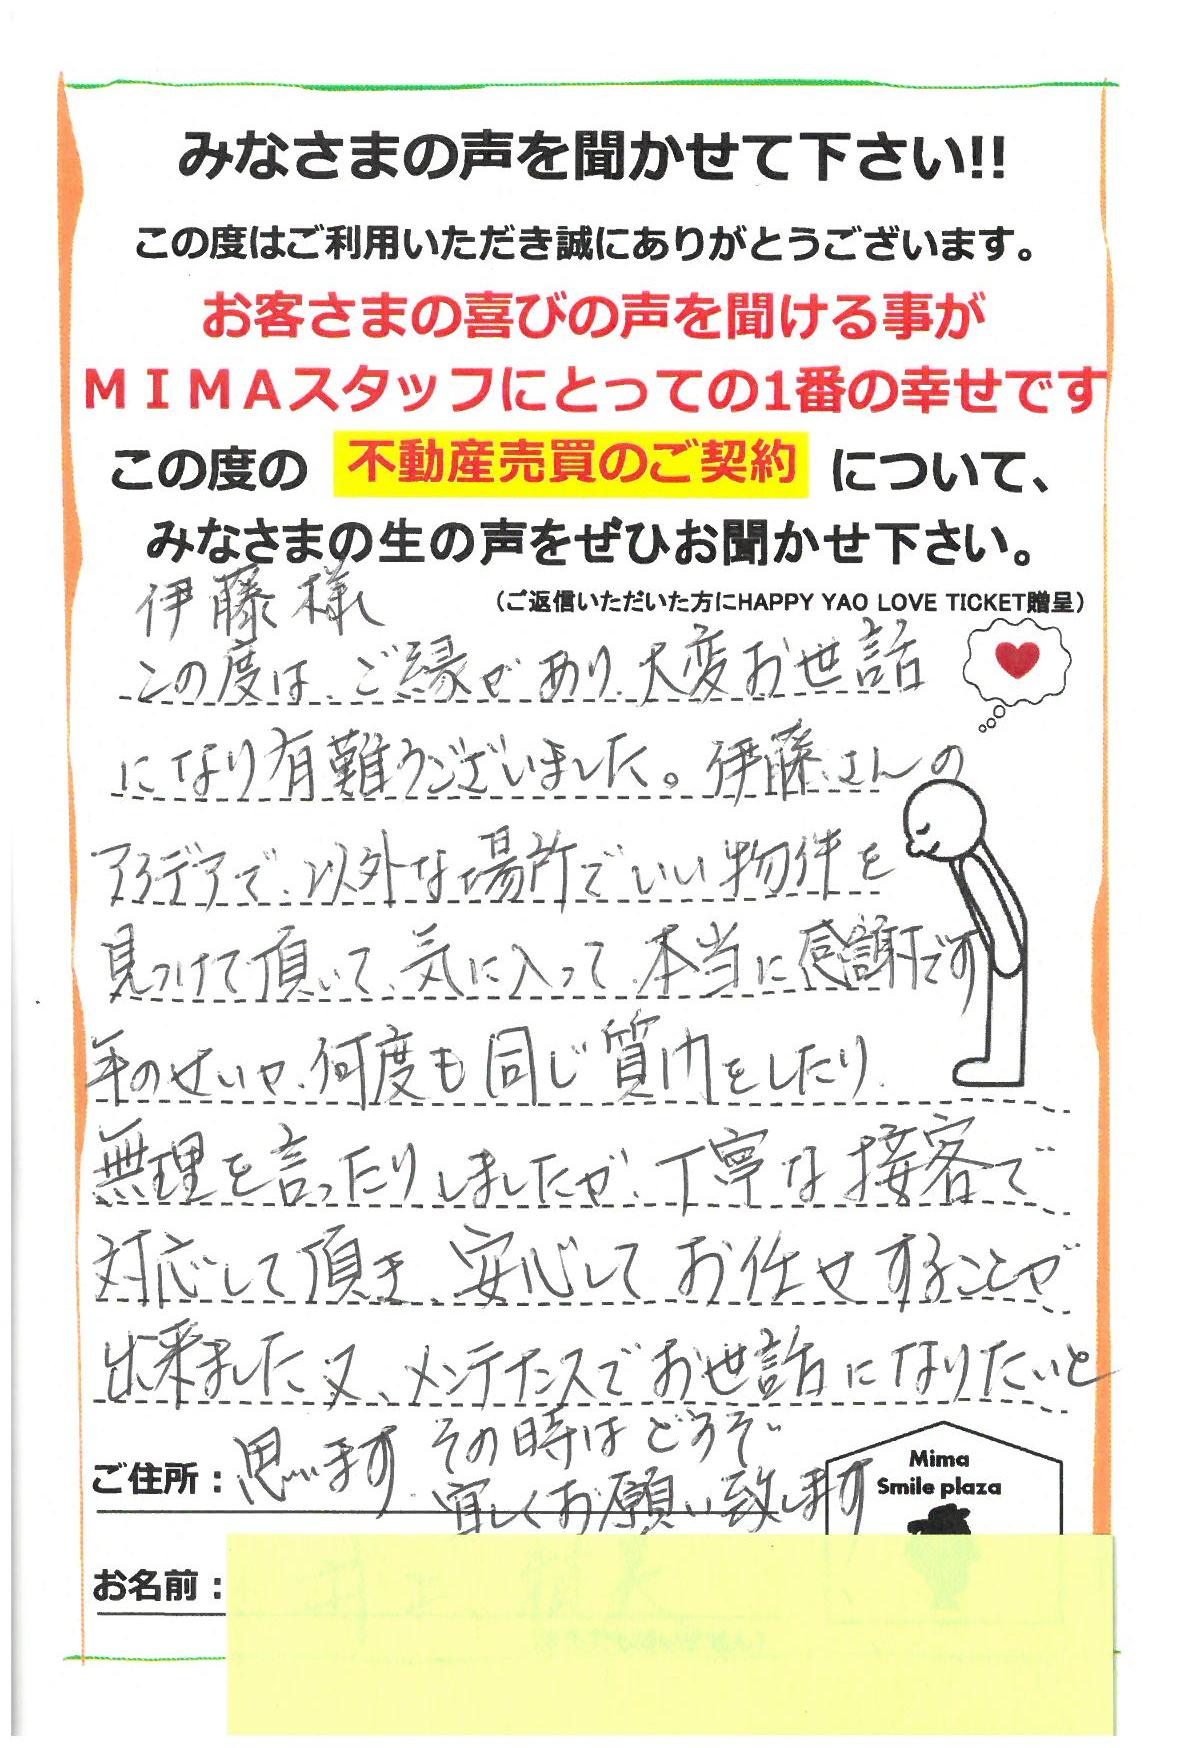 みなさまの声を聞かせて下さい!!
この度はご利用いただき誠にありがとうございます。
お客さまの喜びの声を聞ける事が
ＭＩＭＡスタッフにとっての1番の幸せです
この度の 不動産売買のご契約 について、
みなさまの生の声をぜひお聞かせ下さい。
(ご返信いただいた方にHAPPY YAO LOVE TICKET贈呈)
伊藤様
この度は、ご縁があり、大変お世話
になり有難うございました。伊藤さんの
アイデアで、以外な場所でいい物件を
見つけて頂いて、気に入って、本当に感謝です
年のせいか、何度も同じ質問をしたり、
無理を言ったりしましたが、丁寧な接客で
対応して頂き、安心してお任せすることが
出来ました又、メンテナンスでお世話になりたいと
思います。その時はどうぞ
宜しくお願い致します
ご住所：
Mima
Smile plaza
お名前：